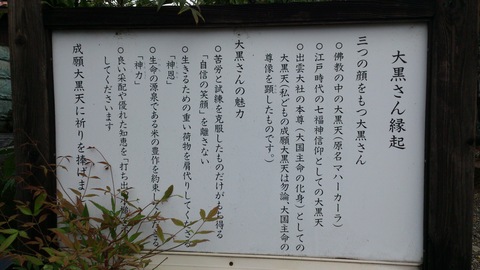 大黒さん縁起
三つの顔をもつ大黒さん
○佛教の中の大黒天(原名マハーカーラ)
○江戸時代の七福神信仰としての大黒天
○出雲大社の本尊(大国主命の化身)としての
大黒天(私どもの成願大黒天は勿論、大国主命の
尊像を顕したものです。)
大黒さんの魅力
○苦労と試練を克服したものだけがもち得る
「自信の笑顔」を離さない
○生きるための重い荷物を肩代りしてくださる
「神恩」
○生命の源泉である米の豊作を約束し
「神力」
○良い采配や優れた知恵を「打ち出
してくださいます
成願大黒天に祈りを捧げま